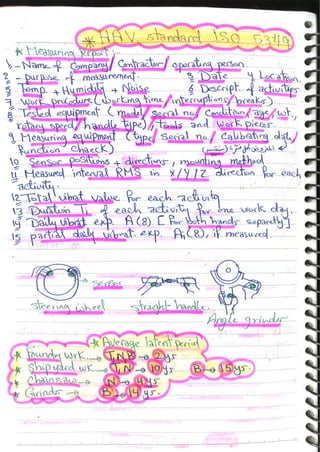 * HAV standard ISO 5349
* Measuring Report:
1 - Name of Company / Contractor / operating person.
2 - purpose of measurement. 3 Date 4 Location.
5 Temp. + Humidity + Noise 6 Descript. of activities
7 work procedure (working time / interruptions / breaks).
8 Tested equipment (model / serial no / Condition / age / wt.,
rotary speed / handle type); tools and work pieces.
9 Measuring equipment (type / Serial no / Calibrating date /
Function Chaeck)
10 Sensor positions + directions, mounting method
11 Measured interval RMS in X/Y/Z direction for each
activity.
12 Total vibrat value for each activity
13 Duration Ti of each activity for one work day.
14 Daily vibrat. exp. A(8) [For both hands separetly]
15 partial daily vibrat. exp. Ai(8), if measured.
Sensor
Steering wheel straight handle. Angle grinder
* Average latent period
* Foundry wrk. → T,N,B → 2 ys.
* Shipyard wk → T,N → 10 ys B → 15 ys.
* Chainsaw → N → 4 ys
* Grinder → B → 14 ys.